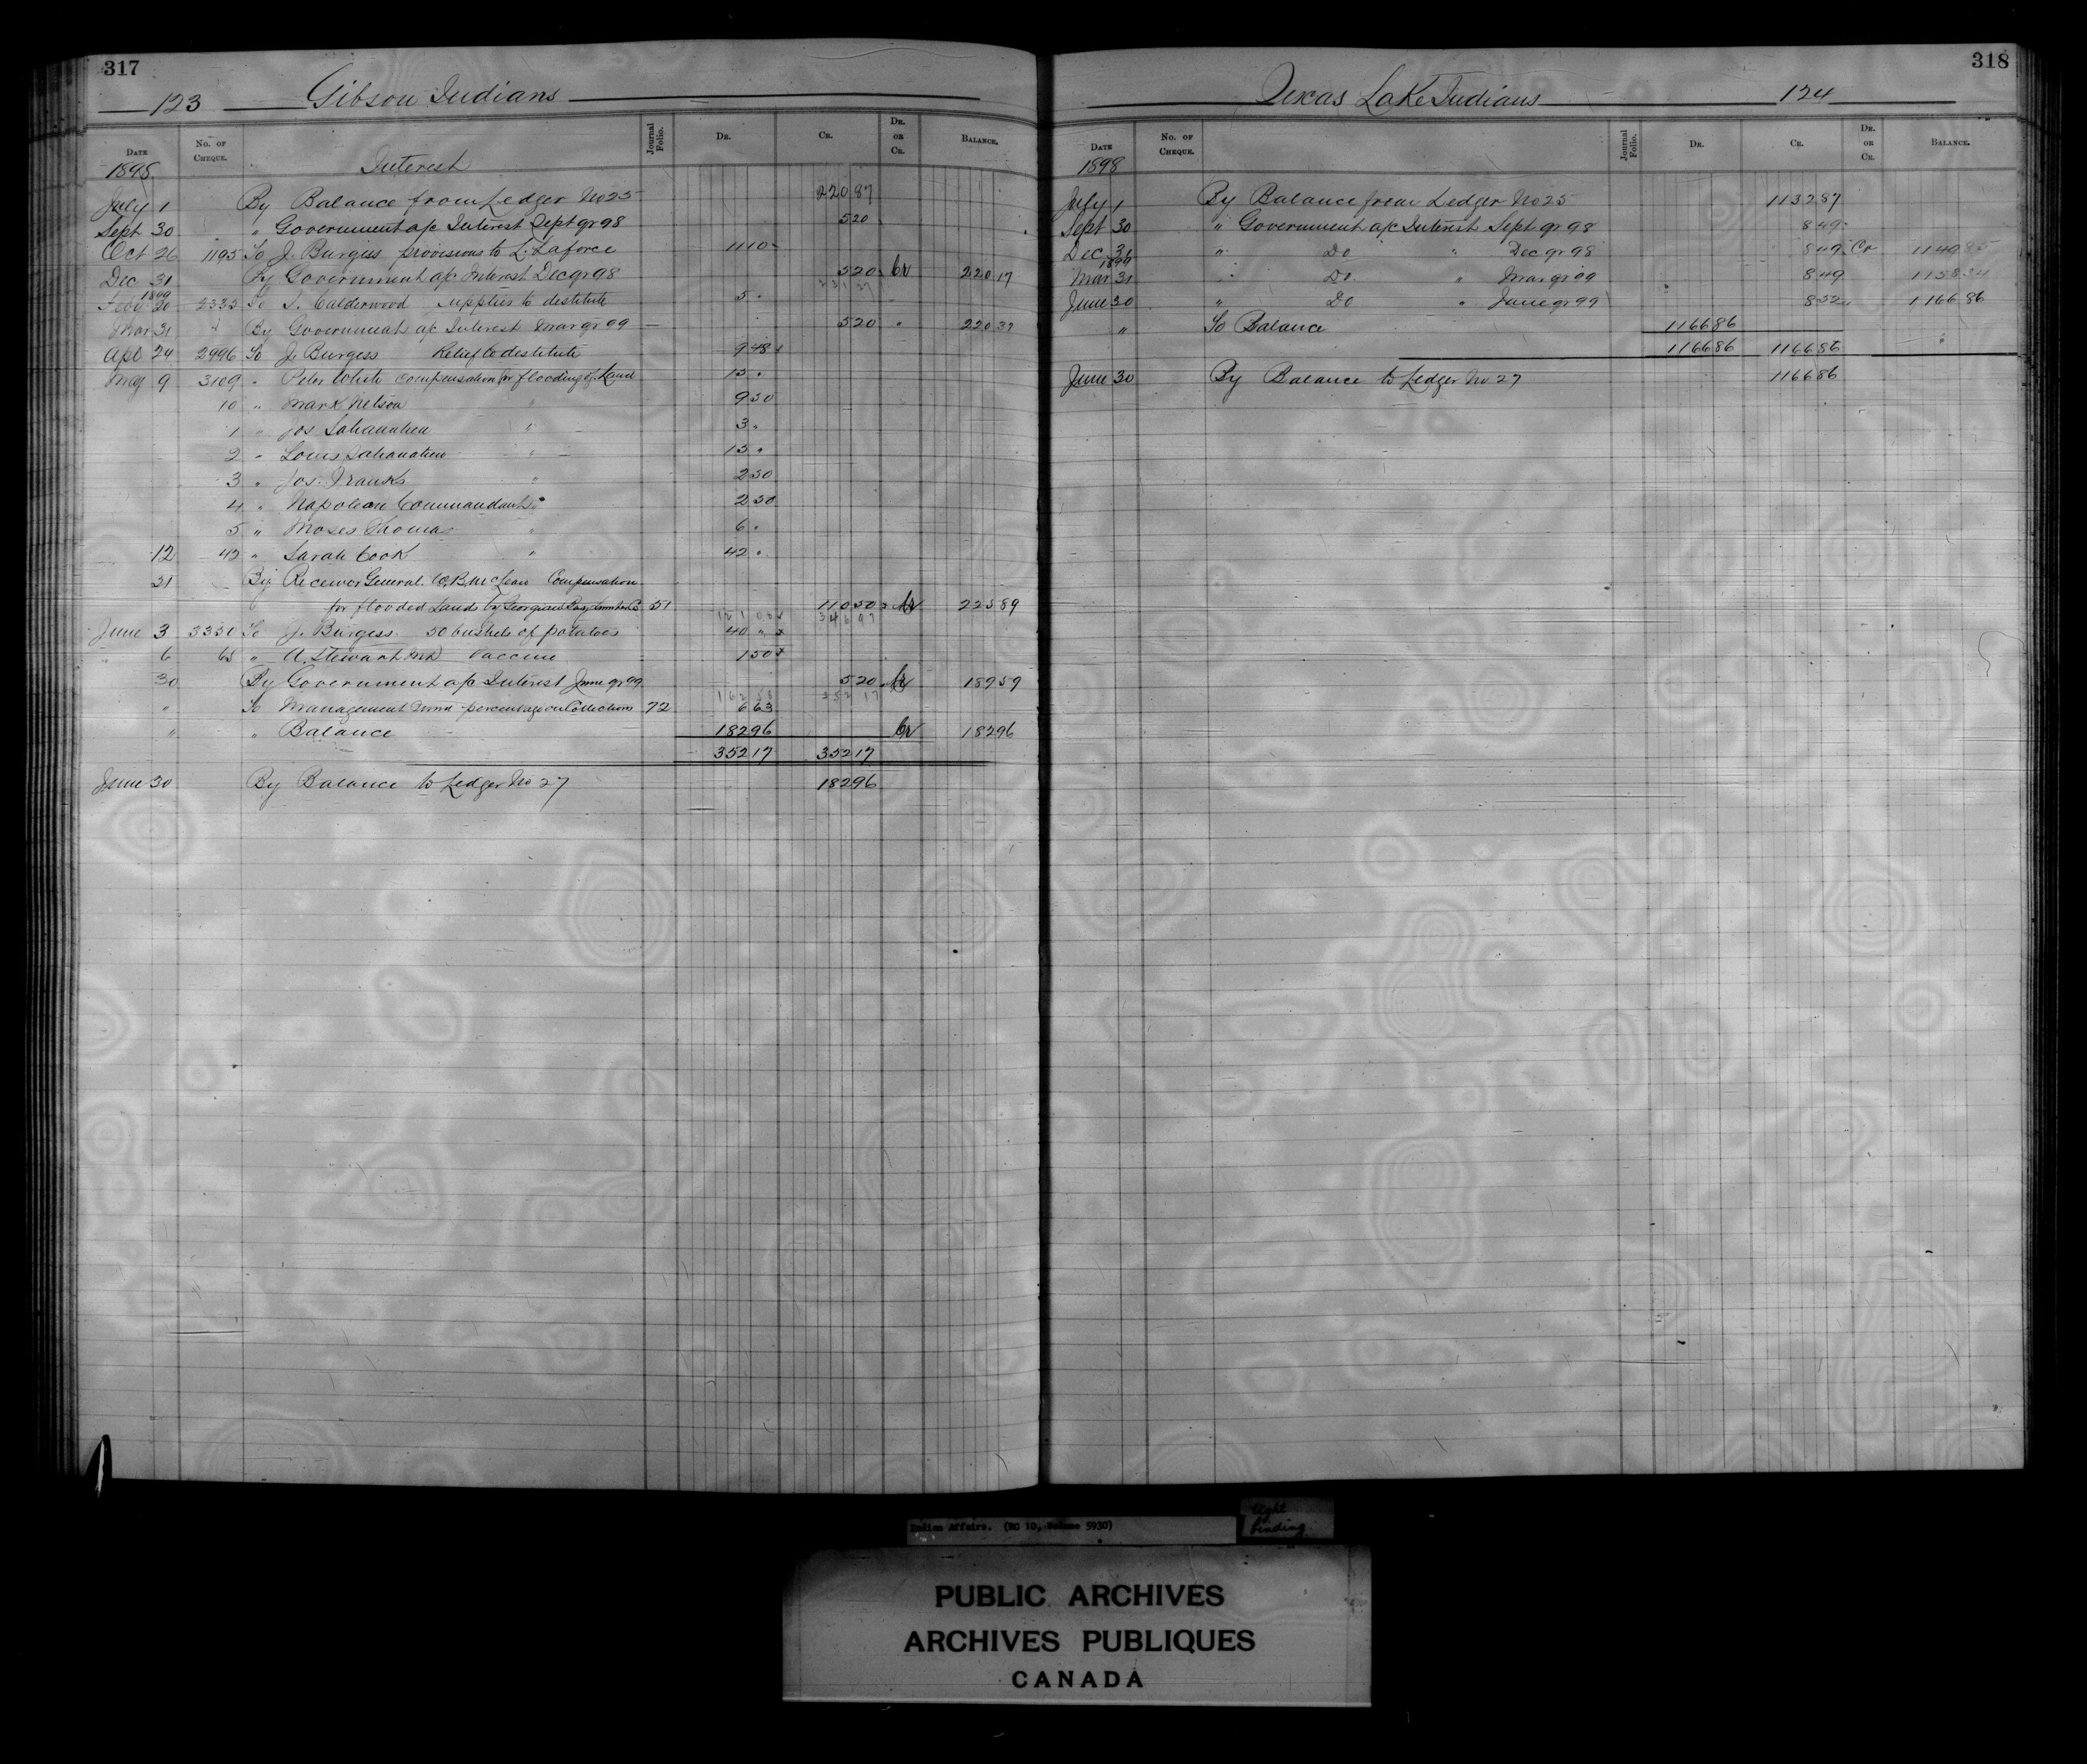 317
123 Gibson Indians
DATE No. OF CHEQUE. Journal Folio. DR. CR. DR. OR CR. BALANCE.
1898 Interest
July 1 By Balance from Ledger No 25 220 87
Sept 30 " Government a/c Interest Sept qr 98 5 20
Oct 26 1195 To J. Burgess provisions to L. Laforce 11 10
Dec 31 By Government a/c Interest Dec qr 98 5 20 Cr 220 17
231 27
1899
Feby 20 2332 To S. Calderwood supplies to destitute 5 "
Mar 31 By Government a/c Interest Mar qr 99 5 20 " 220 37
Apl 24 2996 To J. Burgess Relief to destitute 9 48
May 9 3109 " Peter White compensation for flooding of Land 15 "
10 " Mark Nelson " 9 50
1 " Jos Sahanatien " 3 "
2 " Louis Sahanatien " 15 "
3 " Jos. Franks " 2 50
4 " Napoleon Commandant " 2 50
5 " Moses Thomas " 6 "
12 42 " Sarah Cook " 42 "
31 By Receiver General. W. B. McLean Compensation
for flooded Lands by Georgian Bay Lumber Co 51 110 50 Cr 225 89
346 97
June 3 3330 To J. Burgess. 50 bushels of potatoes 40 "
6 65 " A. Stewart MD Vaccine 1 50
30 By Government a/c Interest June qr 99 5 20 Cr 189 59
162 58 352 17
" To Management Fund percentage on Collections 72 6 63
" " Balance 182 96 Cr 182 96
352 17 352 17
June 30 By Balance to Ledger No 27 182 96
318
Texas Lake Indians 124
DATE No. OF CHEQUE. Journal Folio. DR. CR. DR. OR CR. BALANCE.
1898
July 1 By Balance from Ledger No 25 1132 87
Sept 30 " Government a/c Interest Sept qr 98 8 49
Dec 31 " Do " Dec qr 98 8 49 Cr 1149 85
1899
Mar 31 " Do " Mar qr 99 8 49 1158 34
June 30 " Do " June qr 99 8 52 1166 86
" To Balance 1166 86
1166 86 1166 86
June 30 By Balance to Ledger No 27 1166 86
Indian Affairs. (RG 10, Volume 5930)
tight
binding
PUBLIC ARCHIVES
ARCHIVES PUBLIQUES
CANADA